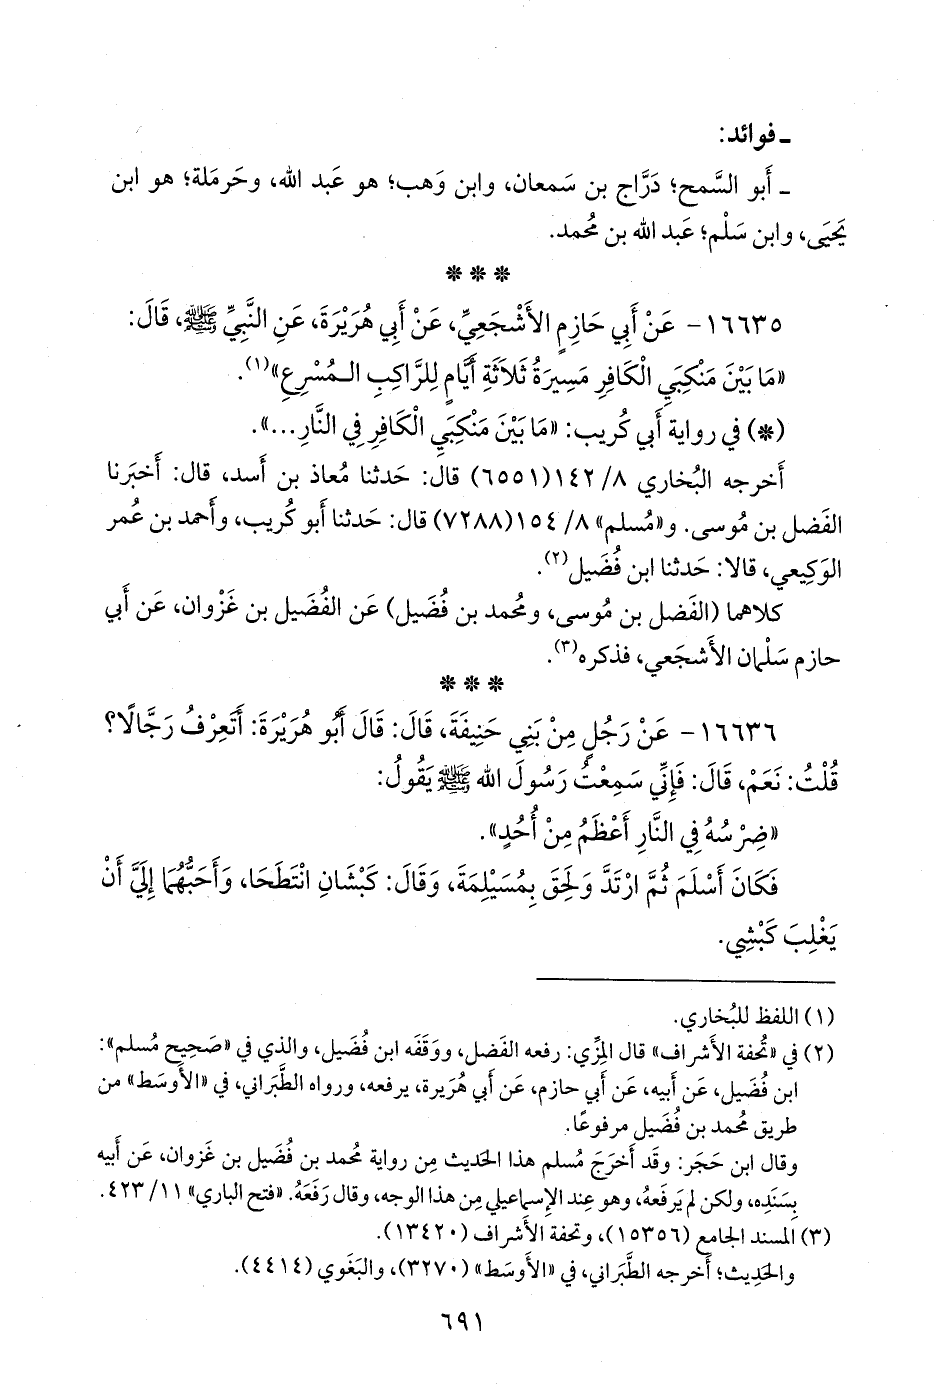 ـ فوائد:
ـ أَبو السَّمح؛ دَرَّاج بن سَمعان، وابن وَهب؛ هو عَبد الله، وحَرمَلة؛ هو ابن
يَحيَى، وابن سَلْم؛ عَبد الله بن مُحمد.
* * *
١٦٦٣٥ - عَنْ أَبِي حَازِمٍ الأَشْجَعِيِّ، عَنْ أَبِي هُرَيْرَةَ، عَنِ النَّبِيِّ ﷺ، قَالَ:
«مَا بَيْنَ مَنْكِبَيِ الْكَافِرِ مَسِيرَةُ ثَلَاثَةِ أَيَّامٍ لِلرَّاكِبِ الـمُسْرِعِ»(١).
(*) في رواية أَبي كُريب: «مَا بَيْنَ مَنْكِبَيِ الْكَافِرِ فِي النَّارِ...».
أَخرجه البُخاري ٨/ ١٤٢(٦٥٥١) قال: حَدثنا مُعاذ بن أَسد، قال: أَخبَرنا
الفَضل بن مُوسى. و«مُسلم» ٨/ ١٥٤(٧٢٨٨) قال: حَدثنا أَبو كُريب، وأَحمد بن عُمر
الوَكِيعي، قالا: حَدثنا ابن فُضَيل(٢).
كلاهما (الفَضل بن مُوسى، ومُحمد بن فُضَيل) عَن الفُضَيل بن غَزْوان، عَن أَبي
حازم سَلْمان الأَشجَعي، فذكره(٣).
* * *
١٦٦٣٦ - عَنْ رَجُلٍ مِنْ بَنِي حَنِيفَةَ، قَالَ: قَالَ أَبُو هُرَيْرَةَ: أَتَعرِفُ رَجَّالًا؟
قُلْتُ: نَعَمْ، قَالَ: فَإِنِّي سَمِعْتُ رَسُولَ الله ﷺ يَقُولُ:
«ضِرْسُهُ فِي النَّارِ أَعْظَمُ مِنْ أُحُدٍ».
فَكَانَ أَسْلَمَ ثُمَّ ارْتَدَّ وَلَحِقَ بِمُسَيْلِمَةَ، وَقَالَ: كَبْشَانِ انْتَطَحَا، وَأَحَبُّهُمَا إِلَيَّ أَنْ
يَغْلِبَ كَبْشِي.
(١) اللفظ للبُخاري.
(٢) في «تُحفة الأَشراف» قال المِزِّي: رفعه الفَضل، ووَقَفَه ابن فُضَيل، والذي في «صَحِيح مُسلم»:
ابن فُضَيل، عَن أَبيه، عَن أَبي حازم، عَن أَبي هُرَيرة، يرفعه، ورواه الطَّبَراني، في «الأَوسَط» من
طريق مُحمد بن فُضَيل مرفوعًا.
وقال ابن حَجَر: وقد أَخرَجَ مُسلم هذا الحَديث مِن رواية مُحمد بن فُضَيل بن غَزوان، عَن أَبيه
بِسَنَدِه، ولكن لم يَرفَعهُ، وهو عِند الإِسماعيلي مِن هذا الوجه، وقال رَفَعَهُ. «فتح الباري» ١١/ ٤٢٣.
(٣) المسند الجامع (١٥٣٥٦)، وتحفة الأَشراف (١٣٤٢٠).
والحَدِيث؛ أَخرجه الطَّبَراني، في «الأَوسَط» (٣٢٧٠)، والبَغَوي (٤٤١٤).
٦٩١